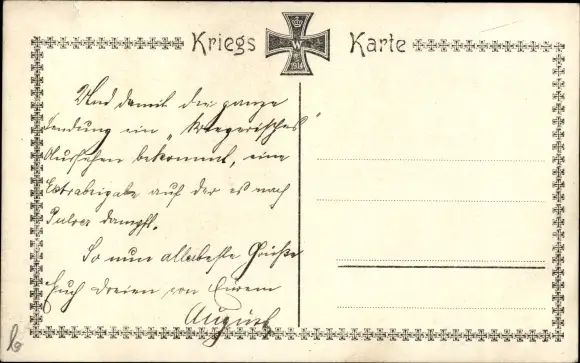 Kriegs Karte
W
1914
Und damit die ganze
Sendung ein „kriegerisches"
Aussehen bekommt, eine
Extrabeigabe auf der es nach
Pulver dampft.
So nun allerbeste Grüße
Euch dreien von Eurem
August